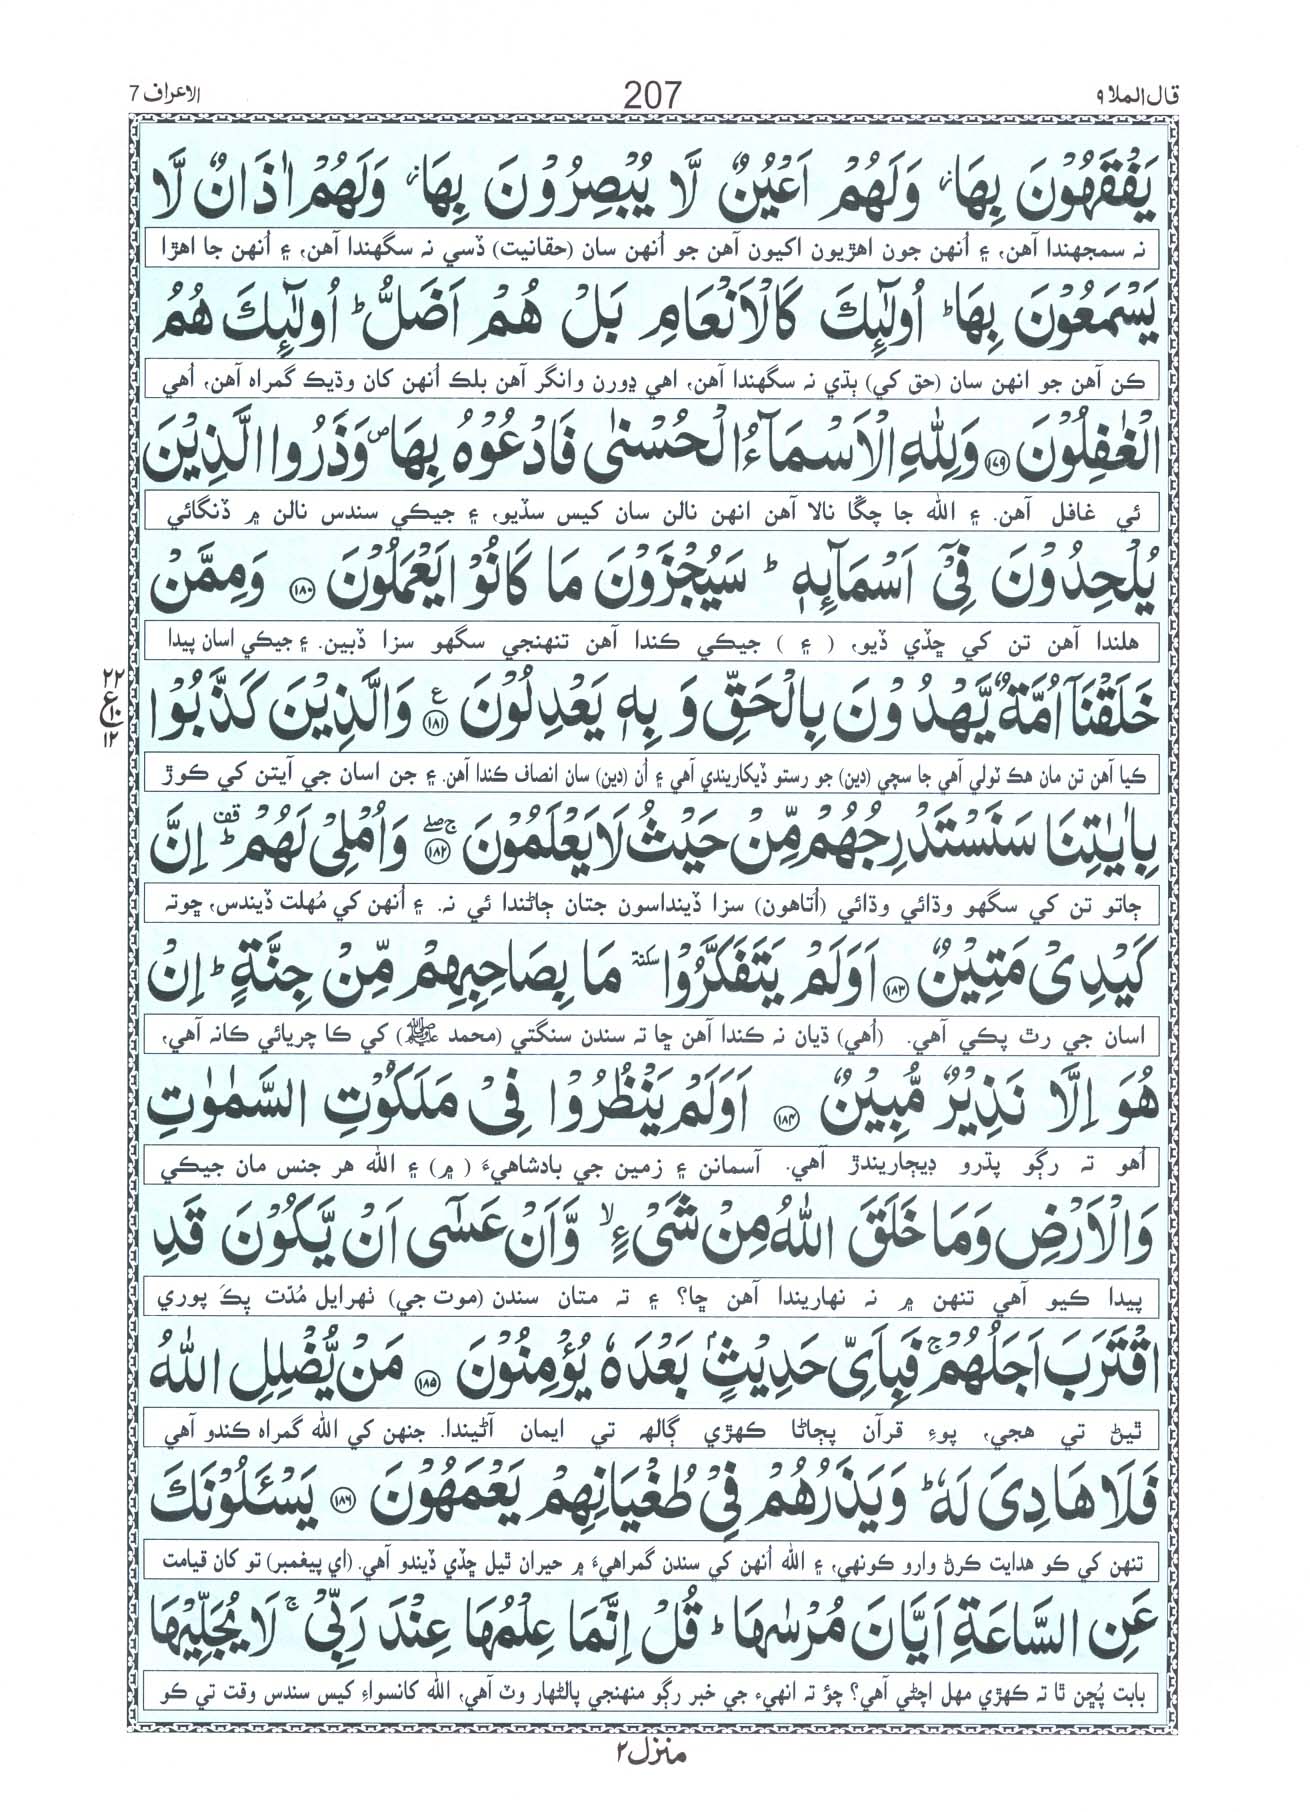 قال الملا ۹
207
الاعراف 7
يَفْقَهُوْنَ بِهَا ؗ وَلَهُمْ اَعْيُنٌ لَّا يُبْصِرُوْنَ بِهَا ؗ وَلَهُمْ اٰذَانٌ لَّا
نہ سمجهندا آهن، ۽ اُنهن جون اهڙيون اکيون آهن جو اُنهن سان (حقانيت) ڏسي نہ سگهندا آهن، ۽ اُنهن جا اهڙا
يَسْمَعُوْنَ بِهَا ؕ اُولٰٓئِكَ كَالْاَنْعَامِ بَلْ هُمْ اَضَلُّ ؕ اُولٰٓئِكَ هُمُ
ڪن آهن جو انهن سان (حق کي) ٻڌي نہ سگهندا آهن، اهي ڍورن وانگر آهن بلڪ اُنهن کان وڌيڪ گمراه آهن، اُهي
الْغٰفِلُوْنَ ۱۷۹ وَلِلّٰهِ الْاَسْمَآءُ الْحُسْنٰى فَادْعُوْهُ بِهَا ۪ وَذَرُوا الَّذِيْنَ
ئي غافل آهن. ۽ الله جا چڱا نالا آهن انهن نالن سان کيس سڏيو، ۽ جيڪي سندس نالن ۾ ڏنگائي
يُلْحِدُوْنَ فِيْٓ اَسْمَآئِهٖ ؕ سَيُجْزَوْنَ مَا كَانُوْا يَعْمَلُوْنَ ۱۸۰ وَمِمَّنْ
هلندا آهن تن کي ڇڏي ڏيو، ( ۽ ) جيڪي ڪندا آهن تنهنجي سگهو سزا ڏبين. ۽ جيڪي اسان پيدا
۲۲
ع
۱۰
۱۲
خَلَقْنَآ اُمَّةٌ يَّهْدُوْنَ بِالْحَقِّ وَ بِهٖ يَعْدِلُوْنَ ۱۸۱ ع وَالَّذِيْنَ كَذَّبُوْا
ڪيا آهن تن مان هڪ ٽولي آهي جا سچي (دين) جو رستو ڏيکاريندي آهي ۽ اُن (دين) سان انصاف ڪندا آهن. ۽ جن اسان جي آيتن کي ڪوڙ
بِاٰيٰتِنَا سَنَسْتَدْرِجُهُمْ مِّنْ حَيْثُ لَا يَعْلَمُوْنَ ۱۸۲ ج صلے وَاُمْلِيْ لَهُمْ ؕ قف اِنَّ
ڄاتو تن کي سگهو وڌائي وڌائي (اُتاهون) سزا ڏينداسون جتان ڄاڻندا ئي نہ. ۽ اُنهن کي مُهلت ڏيندس، ڇوتہ
كَيْدِيْ مَتِيْنٌ ۱۸۳ اَوَلَمْ يَتَفَكَّرُوْا سكتة مَا بِصَاحِبِهِمْ مِّنْ جِنَّةٍ ؕ اِنْ
اسان جي رٿ پڪي آهي. (اُهي) ڌيان نہ ڪندا آهن ڇا تہ سندن سنگتي (محمد ﷺ) کي ڪا چريائي ڪانہ آهي،
هُوَ اِلَّا نَذِيْرٌ مُّبِيْنٌ ۱۸۴ اَوَلَمْ يَنْظُرُوْا فِيْ مَلَكُوْتِ السَّمٰوٰتِ
اُهو تہ رڳو پڌرو ڊيڄاريندڙ آهي. آسمانن ۽ زمين جي بادشاهيءَ (۾) ۽ الله هر جنس مان جيڪي
وَالْاَرْضِ وَمَا خَلَقَ اللّٰهُ مِنْ شَيْءٍ ۙ وَّاَنْ عَسٰٓى اَنْ يَّكُوْنَ قَدِ
پيدا ڪيو آهي تنهن ۾ نہ نهاريندا آهن ڇا؟ ۽ تہ متان سندن (موت جي) ٺهرايل مُدّت بِڪَ پوري
اقْتَرَبَ اَجَلُهُمْ ۚ فَبِاَيِّ حَدِيْثٍۭ بَعْدَهٗ يُؤْمِنُوْنَ ۱۸۵ مَنْ يُّضْلِلِ اللّٰهُ
ٿيڻ تي هجي، پوءِ قرآن پڄاڻا ڪهڙي ڳالهہ تي ايمان آڻيندا. جنهن کي الله گمراه ڪندو آهي
فَلَا هَادِيَ لَهٗ ؕ وَيَذَرُهُمْ فِيْ طُغْيَانِهِمْ يَعْمَهُوْنَ ۱۸۶ يَسْـَٔلُوْنَكَ
تنهن کي ڪو هدايت ڪرڻ وارو ڪونهي، ۽ الله اُنهن کي سندن گمراهيءَ ۾ حيران ٿيل ڇڏي ڏيندو آهي. (اي پيغمبر) تو کان قيامت
عَنِ السَّاعَةِ اَيَّانَ مُرْسٰىهَا ؕ قُلْ اِنَّمَا عِلْمُهَا عِنْدَ رَبِّيْ ۚ لَا يُجَلِّيْهَا
بابت پُڇن ٿا تہ ڪهڙي مهل اچڻي آهي؟ چؤ تہ انهيءَ جي خبر رڳو منهنجي پالڻهار وٽ آهي، الله کانسواءِ کيس سندس وقت تي ڪو
منزل ۲